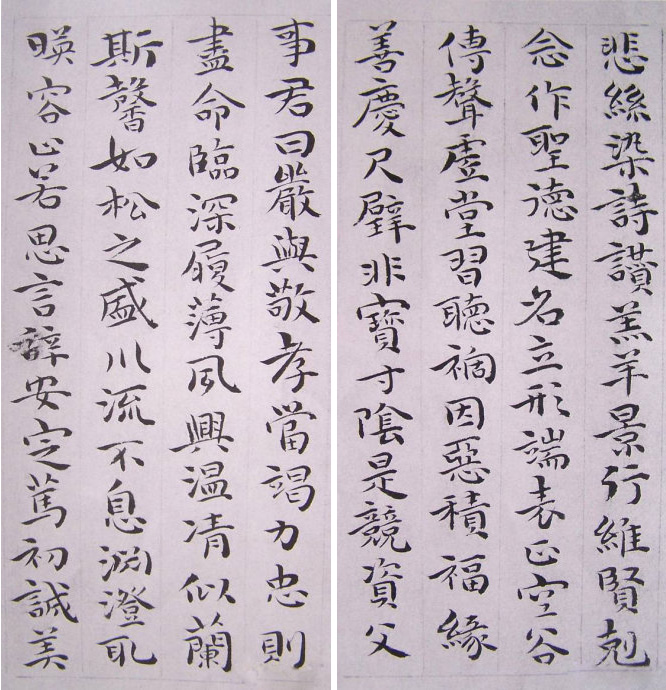 悲絲染詩讚羔羊景行維賢剋
念作聖德建名立形端表正空谷
傳聲虛堂習聽禍因惡積福緣
善慶尺璧非寶寸陰是競資父
事君曰嚴與敬孝當竭力忠則
盡命臨深履薄夙興温凊似蘭
斯馨如松之盛川流不息淵澄取
暎容止若思言辭安定篤初誠美